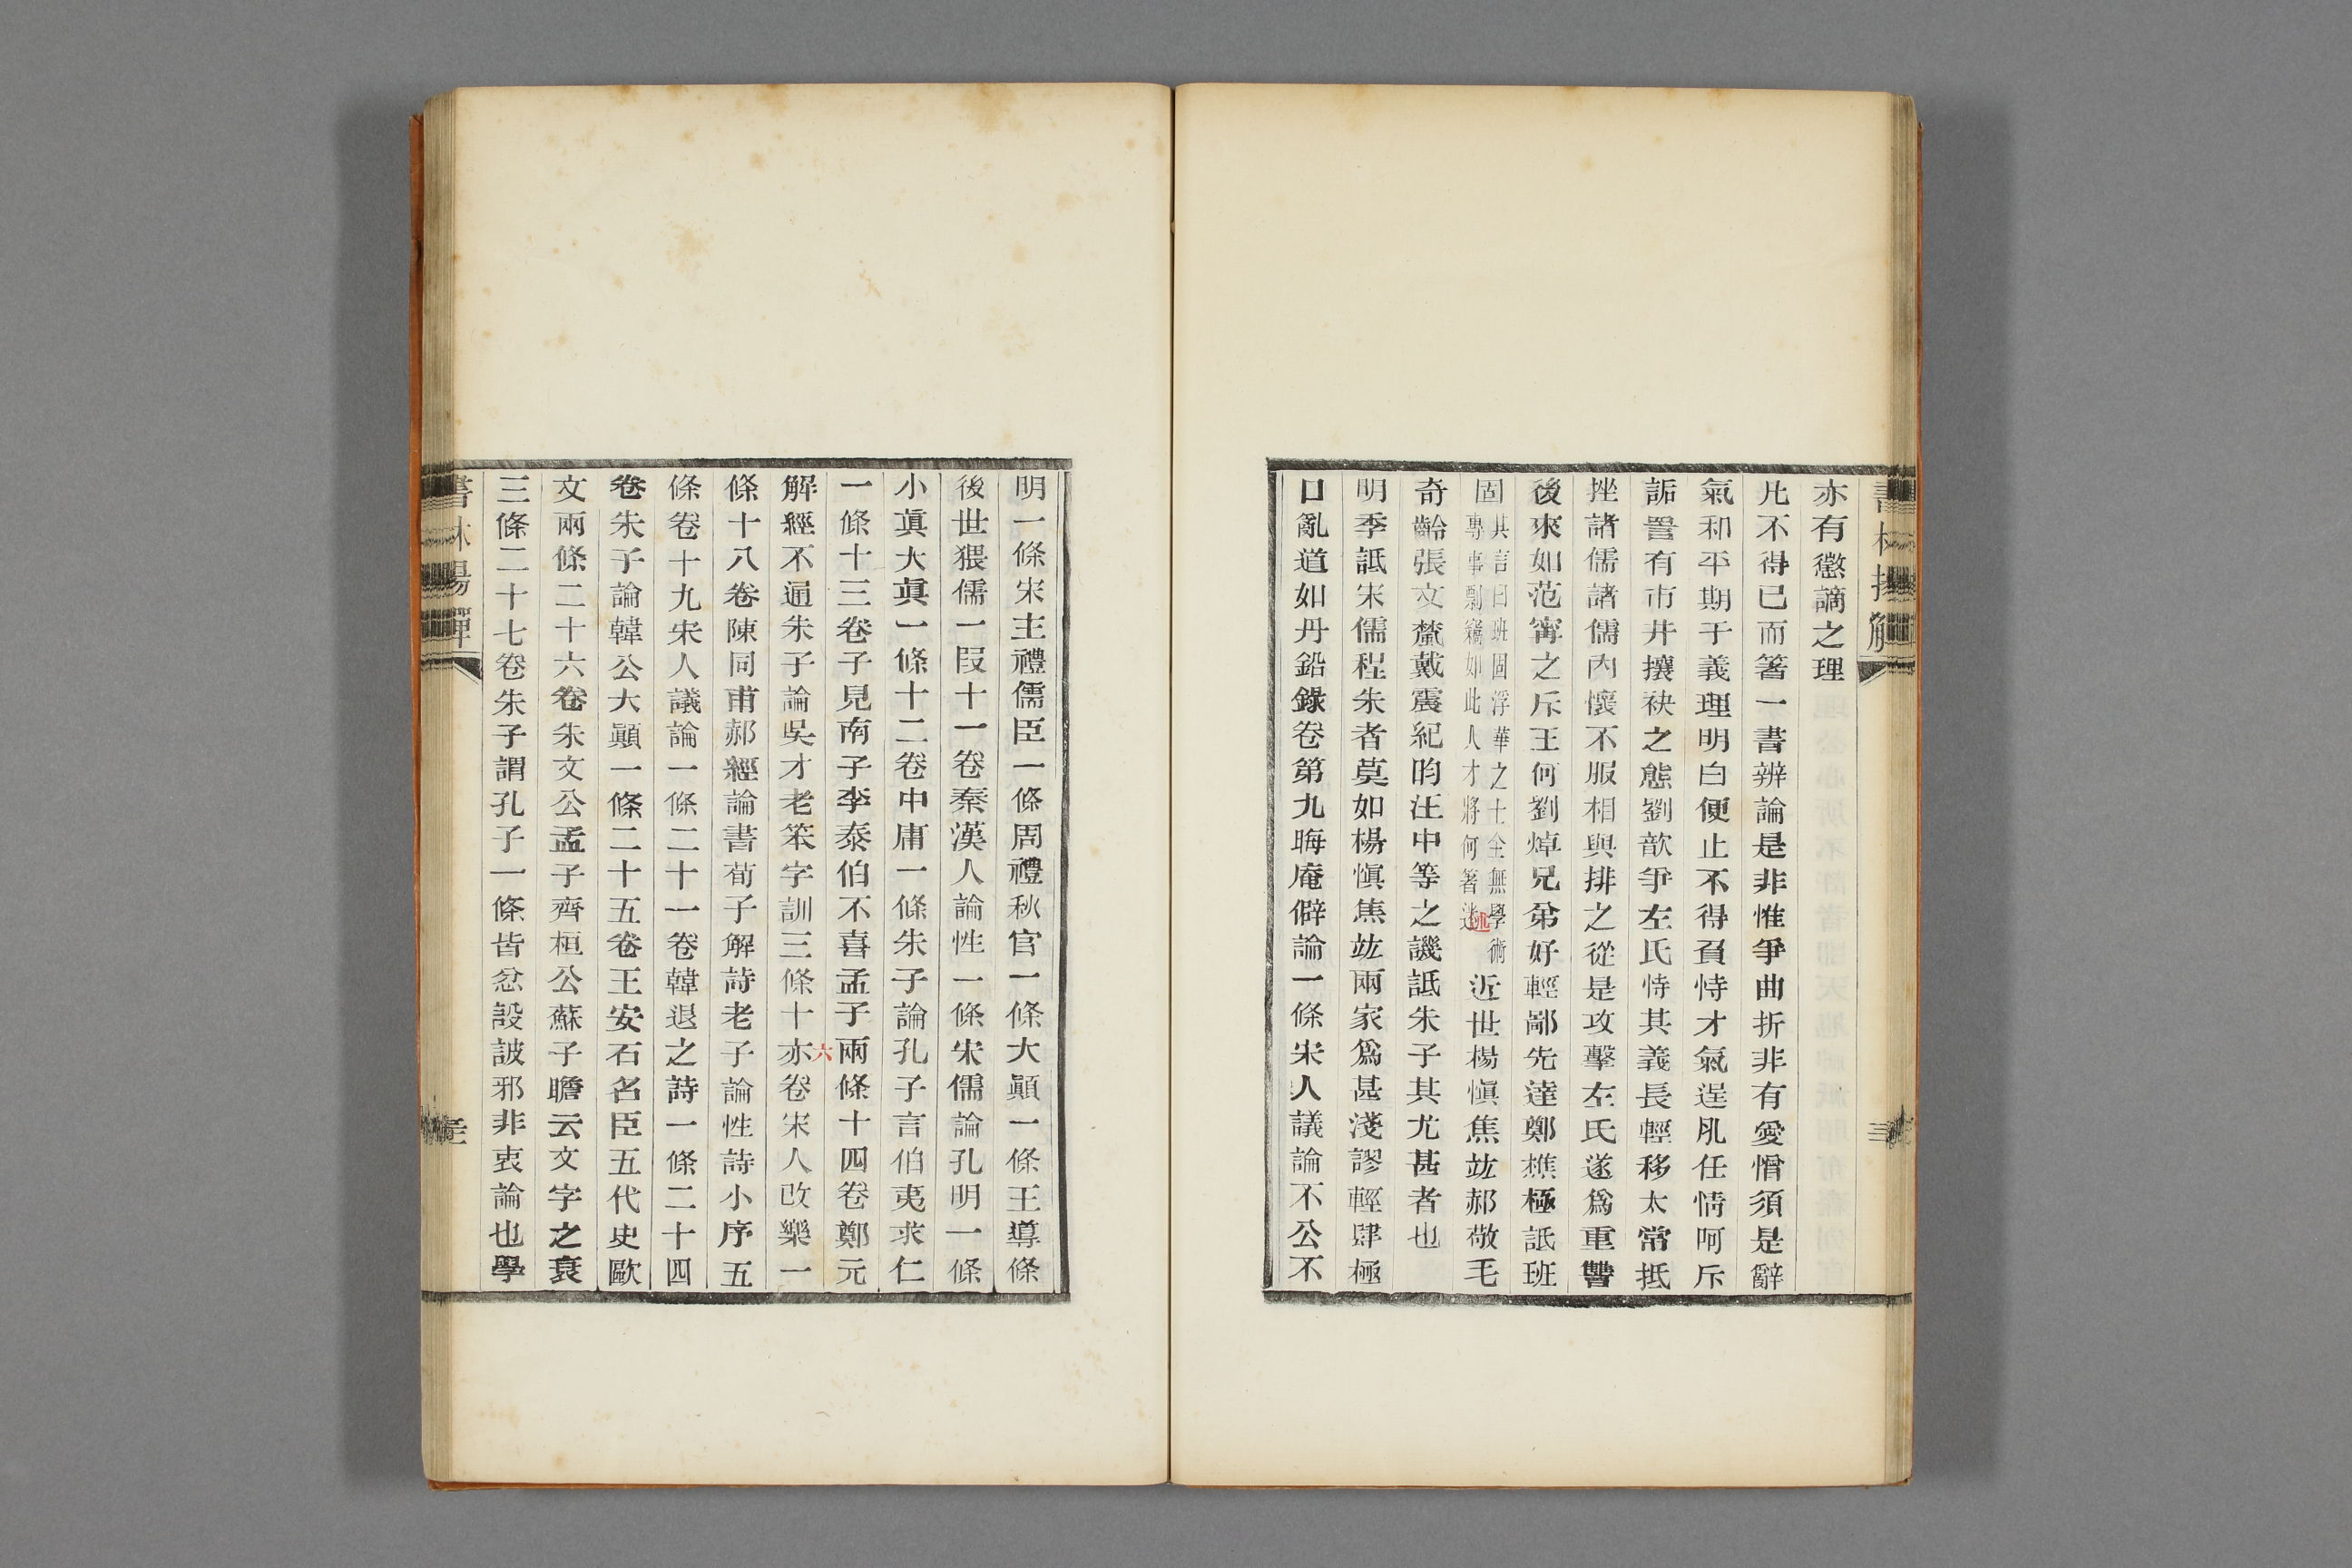 亦有懲謫之理
凡不得已而箸一書辨論是非惟爭曲折非有愛憎須是辭
氣和平期于義理明白便止不得負恃才氣逞肊任情呵斥
詬詈有市井攘袂之態劉歆爭左氏恃其義長輕移太常抵
挫諸儒諸儒內懷不服相與排之從是攻擊左氏遂爲重讐
後來如范甯之斥王何劉焯兄弟好輕鄙先達鄭樵極詆班
固其言曰班固浮華之士全無學術專事剽竊如此人才將何箸述近世楊愼焦竑郝敬毛
奇齡張文虌戴震紀昀汪中等之譏詆朱子其尤甚者也
明季詆宋儒程朱者莫如楊愼焦竑兩家爲甚淺謬輕肆極
口亂道如丹鉛錄卷第九晦庵僻論一條宋人議論不公不
明一條宋主禮儒臣一條周禮秋官一條大顚一條王導條
後世猥儒一段十一卷秦漢人論性一條宋儒論孔明一條
小眞大眞一條十二卷中庸一條朱子論孔子言伯夷求仁
一條十三卷子見南子李泰伯不喜孟子兩條十四卷鄭元
解經不通朱子論吳才老笨字訓三條十亦卷宋人改樂一
六
條十八卷陳同甫郝經論書荀子解詩老子論性詩小序五
條卷十九宋人議論一條二十一卷韓退之詩一條二十四
卷朱子論韓公大顚一條二十五卷王安石名臣五代史歐
文兩條二十六卷朱文公孟子齊桓公蘇子瞻云文字之衰
三條二十七卷朱子謂孔子一條皆忿設詖邪非衷論也學
書林揚觶